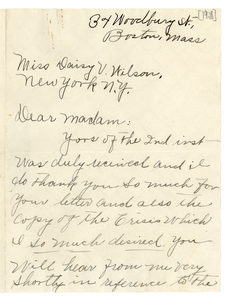 [1938]
34 Woodbury St,
Boston, Mass
Miss Daisy V. Wilson,
New York N.Y.
Dear Madam:
Yors of the 2nd inst
was duly received and I
do thank you so much for
your letter and also the
copy of the Crisis which
I so much desired. You
will hear from me very
shortly in reference to the